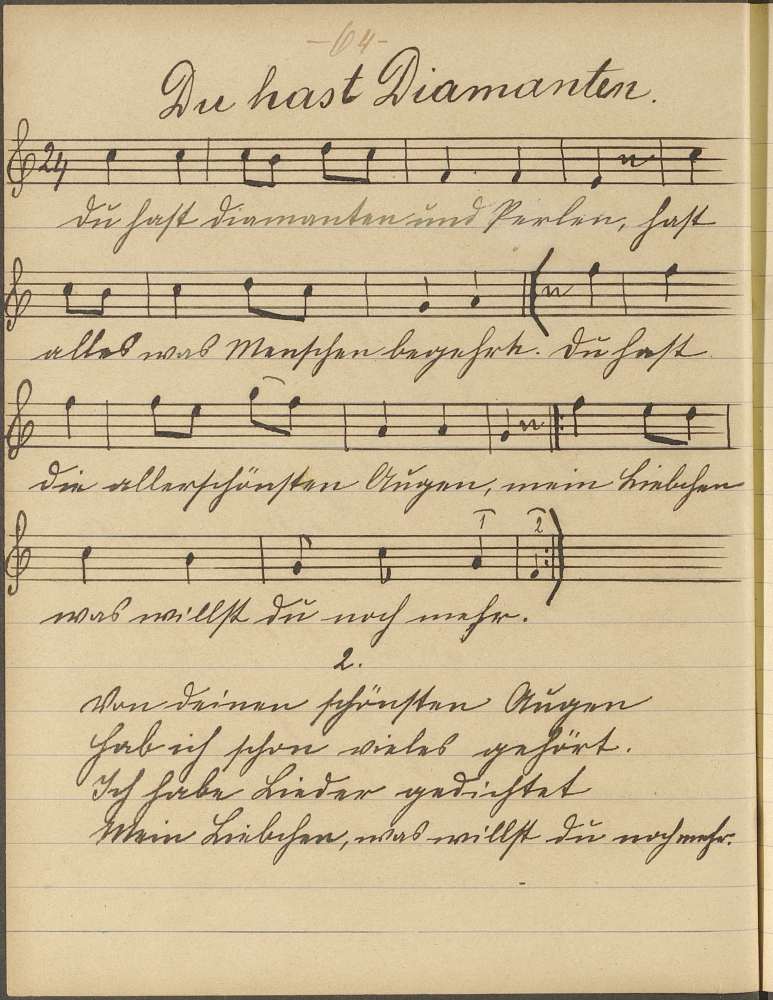 -64-
Du hast Diamanten.
24
Du hast Diamanten und Perlen, hast
alles was Menschen begehrt. Du hast
die allerschönsten Augen, mein Liebchen
1 2
was willst du noch mehr.
2.
Von deinen schönsten Augen
hab ich schon vieles gehört.
Ich habe Lieder gedichtet
Mein Liebchen, was willst du noch mehr.